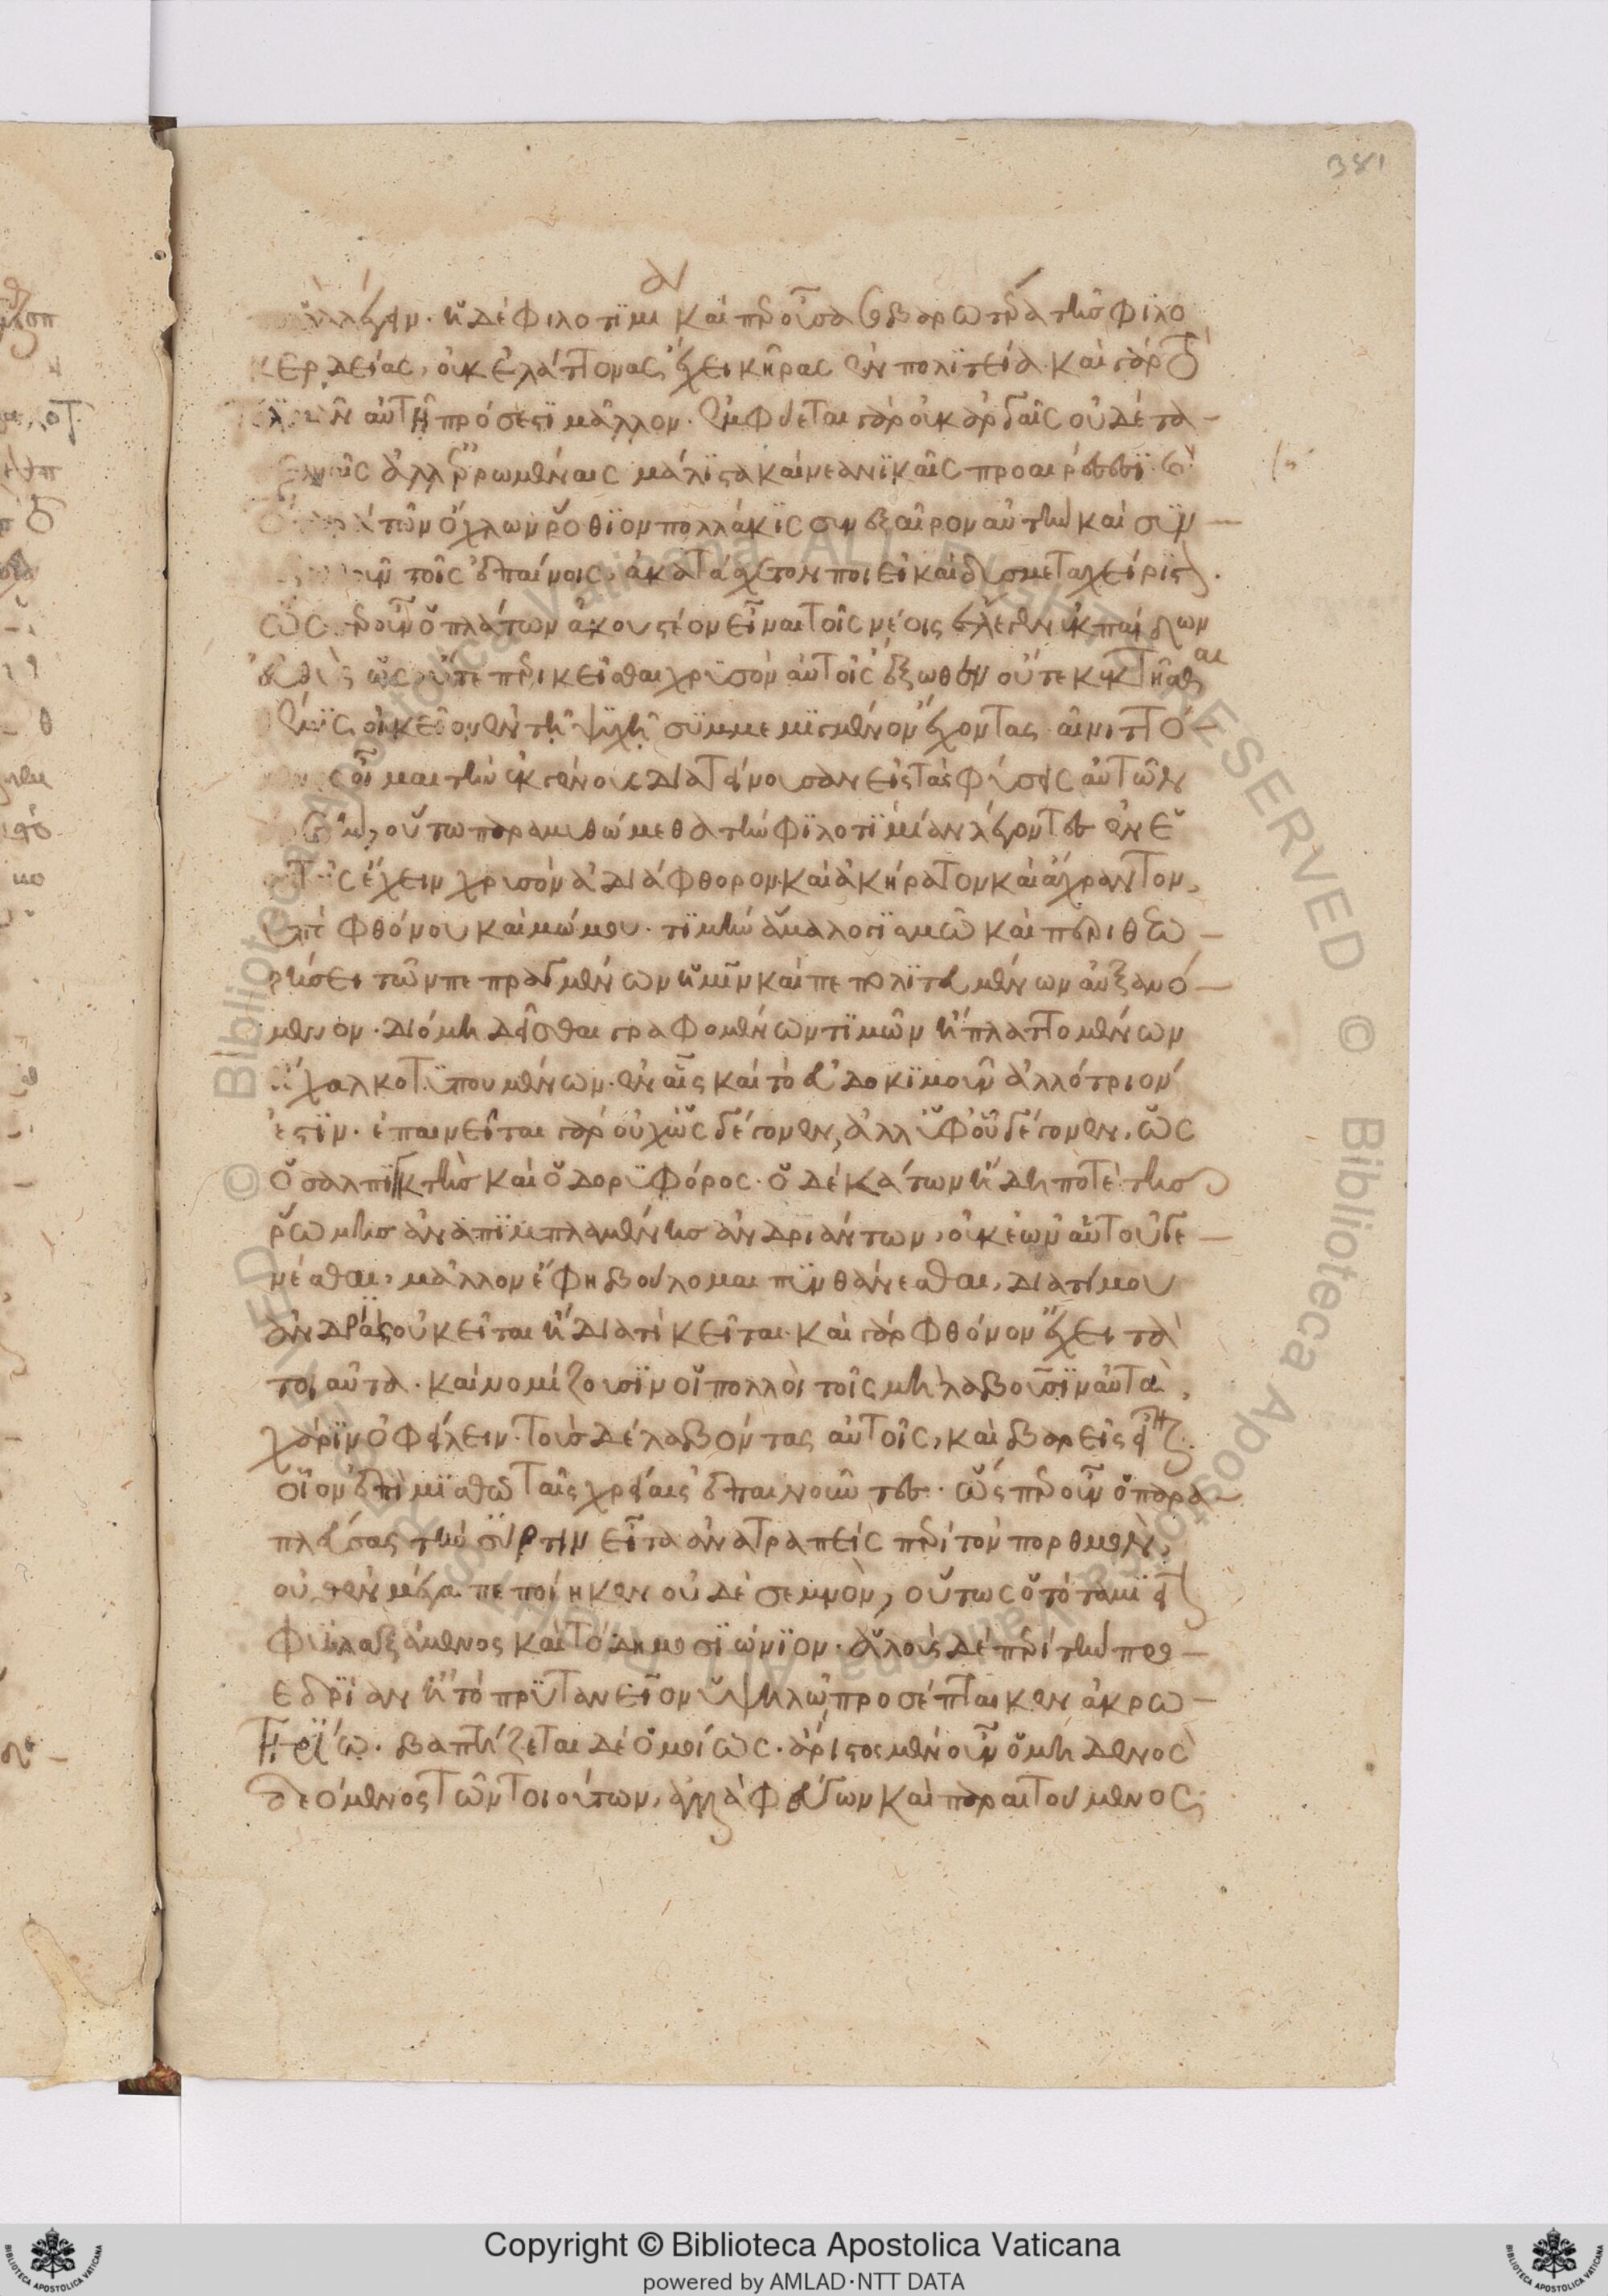 λέγειν. ἡ δὲ φιλοτιμία καίπερ οὖσα σοβαρωτέρα τῆς φιλο
κερδείας, οὐκ ἐλάττονας ἔχει κῆρας ἐν πολιτεία. καὶ γὰρ τὸ
αὐτῆ πρόσεστι μᾶλλον. ἐμφύεται γὰρ οὐκ ἀργαῖς οὐδὲ τα-
ἀλλ' ἐρρωμέναις μάλιστα καὶ νεανικαῖς προαιρέσεσι. καὶ
τῶν ὄχλων ῥόθιον πολλάκις συνεξαῖρον αὐτὴν καὶ συν-
τοῖς ἐπαίνοις, ἀκατάσχετον ποιεῖ καὶ δυσμεταχείριστον.
ὥσπερ οὖν ὁ πλάτων ἀκουστέον εἶναι τοῖς νέοις ἔλεγεν ἐκ παίδων
εὐθὺς ὡς οὔτε περικεῖσθαι χρυσὸν αὐτοῖς ἔξωθεν οὔτε κεκτῆσθαι
θέμις, οἰκεῖον ἐν τῆ ψυχῆ συμμεμιγμένον ἔχοντας. αἰνιττό-
μενος οἶμαι τὴν ἐκ γένους διατείνουσαν εἰς τὰς φύσεις αὐτῶν
οὕτω παραμυθώμεθα τὴν φιλοτιμίαν λέγοντες ἐν ἑ
αυτοῖς ἔχειν χρυσὸν ἀδιάφθορον καὶ ἀκήρατον καὶ ἄχραντον,
ὑπὸ φθόνου καὶ μώμου. τιμὴν ἅμα λογισμῶ καὶ περιθεω-
ρήσει τῶν πεπραγμένων ἡμῖν καὶ πεπολιτευμένων αὐξανό-
μενον. διὸ μὴ δεῖσθαι γραφομένων τιμῶν ἢ πλαττομένων
ἢ χαλκοτυπουμένων. ἐν αἷς καὶ τὸ εὐδοκιμοῦν ἀλλότριον
ἐστιν. ἐπαινεῖται γὰρ οὐχ ὡς γέγονεν, ἀλλ' ὑφ' οὗ γέγονεν, ὡς
ὁ σαλπιγκτὴς καὶ ὁ δορυφόρος. ὁ δὲ κάτων ἤδη ποτὲ τῆς
ῥώμης ἀναπιμπλαμένης ἀνδριάντων, οὐκ ἐῶν αὑτοῦ γε-
νέσθαι, μᾶλλον ἔφη βούλομαι πυνθάνεσθαι, διὰ τί μου
ἀνδριὰς οὐ κεῖται ἢ διὰ τί κεῖται. καὶ γὰρ φθόνον ἔχει τὰ
τοιαῦτα. καὶ νομίζουσιν οἱ πολλοὶ τοῖς μὴ λαβοῦσιν αὐτὰ,
χάριν ὀφείλειν. τοὺς δὲ λαβόντας αὐτοῖς, καὶ βαρεῖς εἶναι.
οἷον ἐπὶ μισθῶ τὰς χρείας ἐπαινοῦντες. ὥσπερ οὖν ὁ παρα-
πλεύσας τὴν σύρτιν εἶτα ἀνατραπεὶς περὶ τὸν πορθμὸν,
οὐδὲν μέγα πεποίηκεν οὐδὲ σεμνὸν, οὕτως ὁ τὸ ταμιεῖον
φυλαξάμενος καὶ τὸ δημοσιώνιον. ἁλοὺς δὲ περὶ τὴν προ-
εδρίαν ἢ τὸ πρυτανεῖον ὑψηλῶ προσέπταικεν ἀκρω-
τηρίω. βαπτίζεται δὲ ὁμοίως. ἄριστος μὲν οὖν ὁ μηδενὸς
δεόμενος τῶν τοιούτων, ἀλλὰ φεύγων καὶ παραιτούμενος.
381
© Biblioteca Apostolica Vaticana ALL RIGHTS RESERVED © Biblioteca Apostolica Vaticana ALL RIGHTS RESERVED
Copyright © Biblioteca Apostolica Vaticana
powered by AMLAD·NTT DATA
BIBLIOTECA APOSTOLICA VATICANA
BIBLIOTECA APOSTOLICA VATICANA